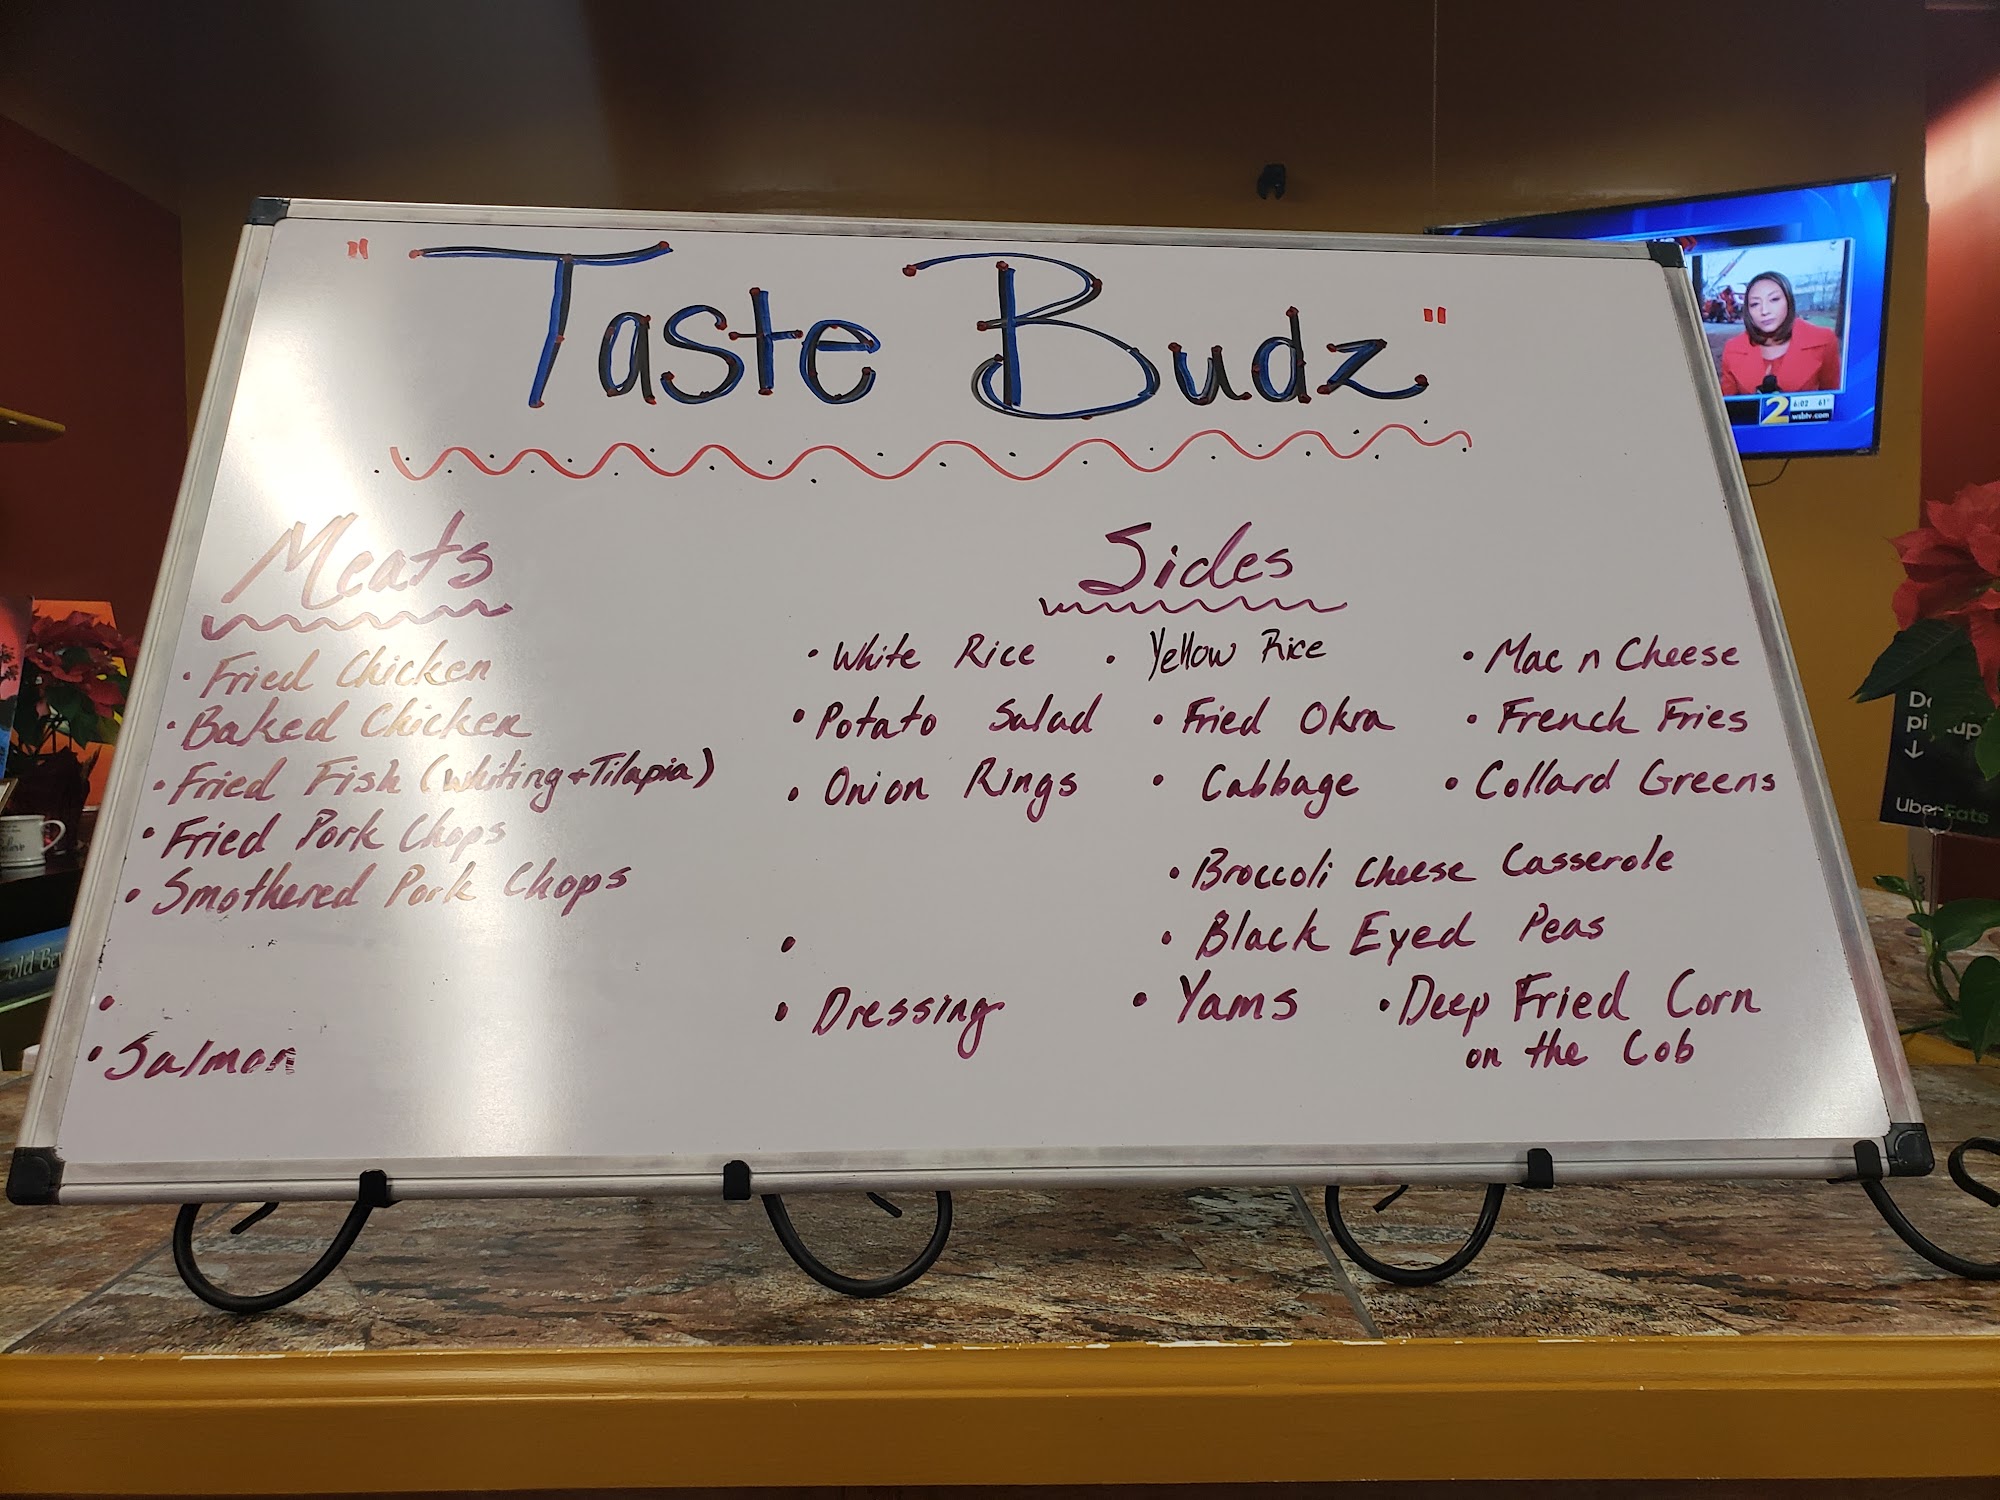 " Taste Budz "
Meats
• Fried Chicken
• Baked Chicken
• Fried Fish (Whiting + Tilapia)
• Fried Pork Chops
• Smothered Pork Chops
•
• Salmon
Sides
• White Rice • Yellow Rice • Mac n Cheese
• Potato Salad • Fried Okra • French Fries
• Onion Rings • Cabbage • Collard Greens
• Broccoli Cheese Casserole
• • Black Eyed Peas
• Dressing • Yams • Deep Fried Corn
on the Cob
2 6:02 61°
wsbtv.com
↓
Uber Eats
Cold